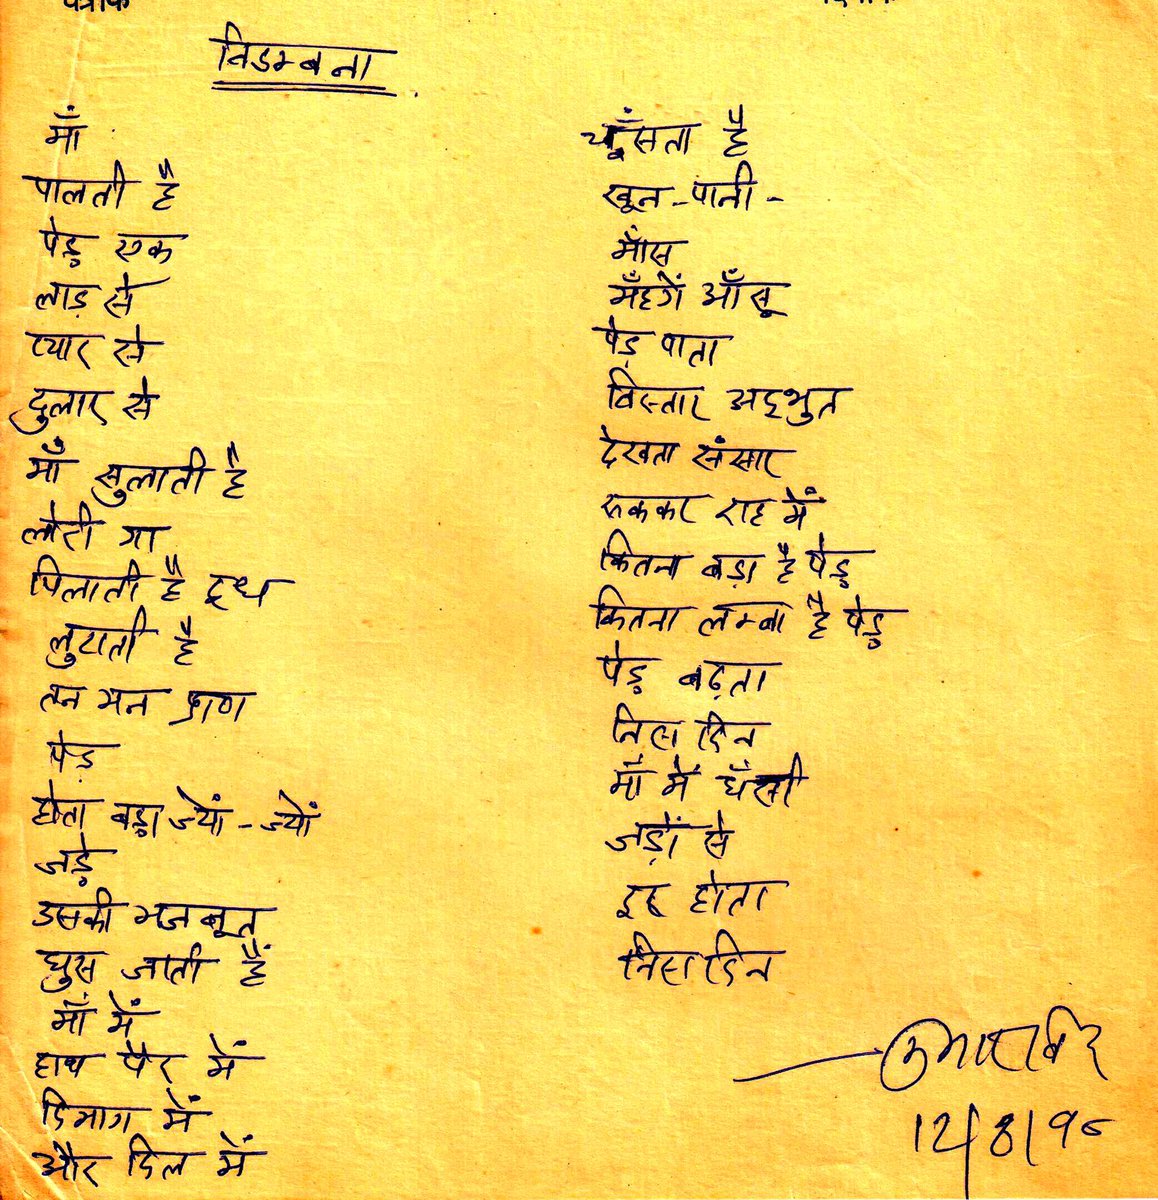 पत्रांक
विडम्बना
माँ
पालती है
पेड़ एक
लाड़ से
प्यार से
दुलार से
माँ सुलाती है
लोरी गा
पिलाती है दूध
लुटाती है
तन मन प्राण
पेड़
होता बड़ा ज्यों-ज्यों
जड़े
उसकी मजबूत
घुस जाती हैं
माँ में
हाथ पैर में
दिमाग में
और दिल में
चूँसता है
खून-पानी-
माँस
मँहगें आँसू
पेड़ पाता
विस्तार अद्भुत
देखता संसार
रुककर राह में
कितना बड़ा है पेड़
कितना लम्बा है पेड़
पेड़ बढ़ता
निस दिन
माँ में धँसी
जड़ों से
दृढ़ होता
निस दिन
12/8/98